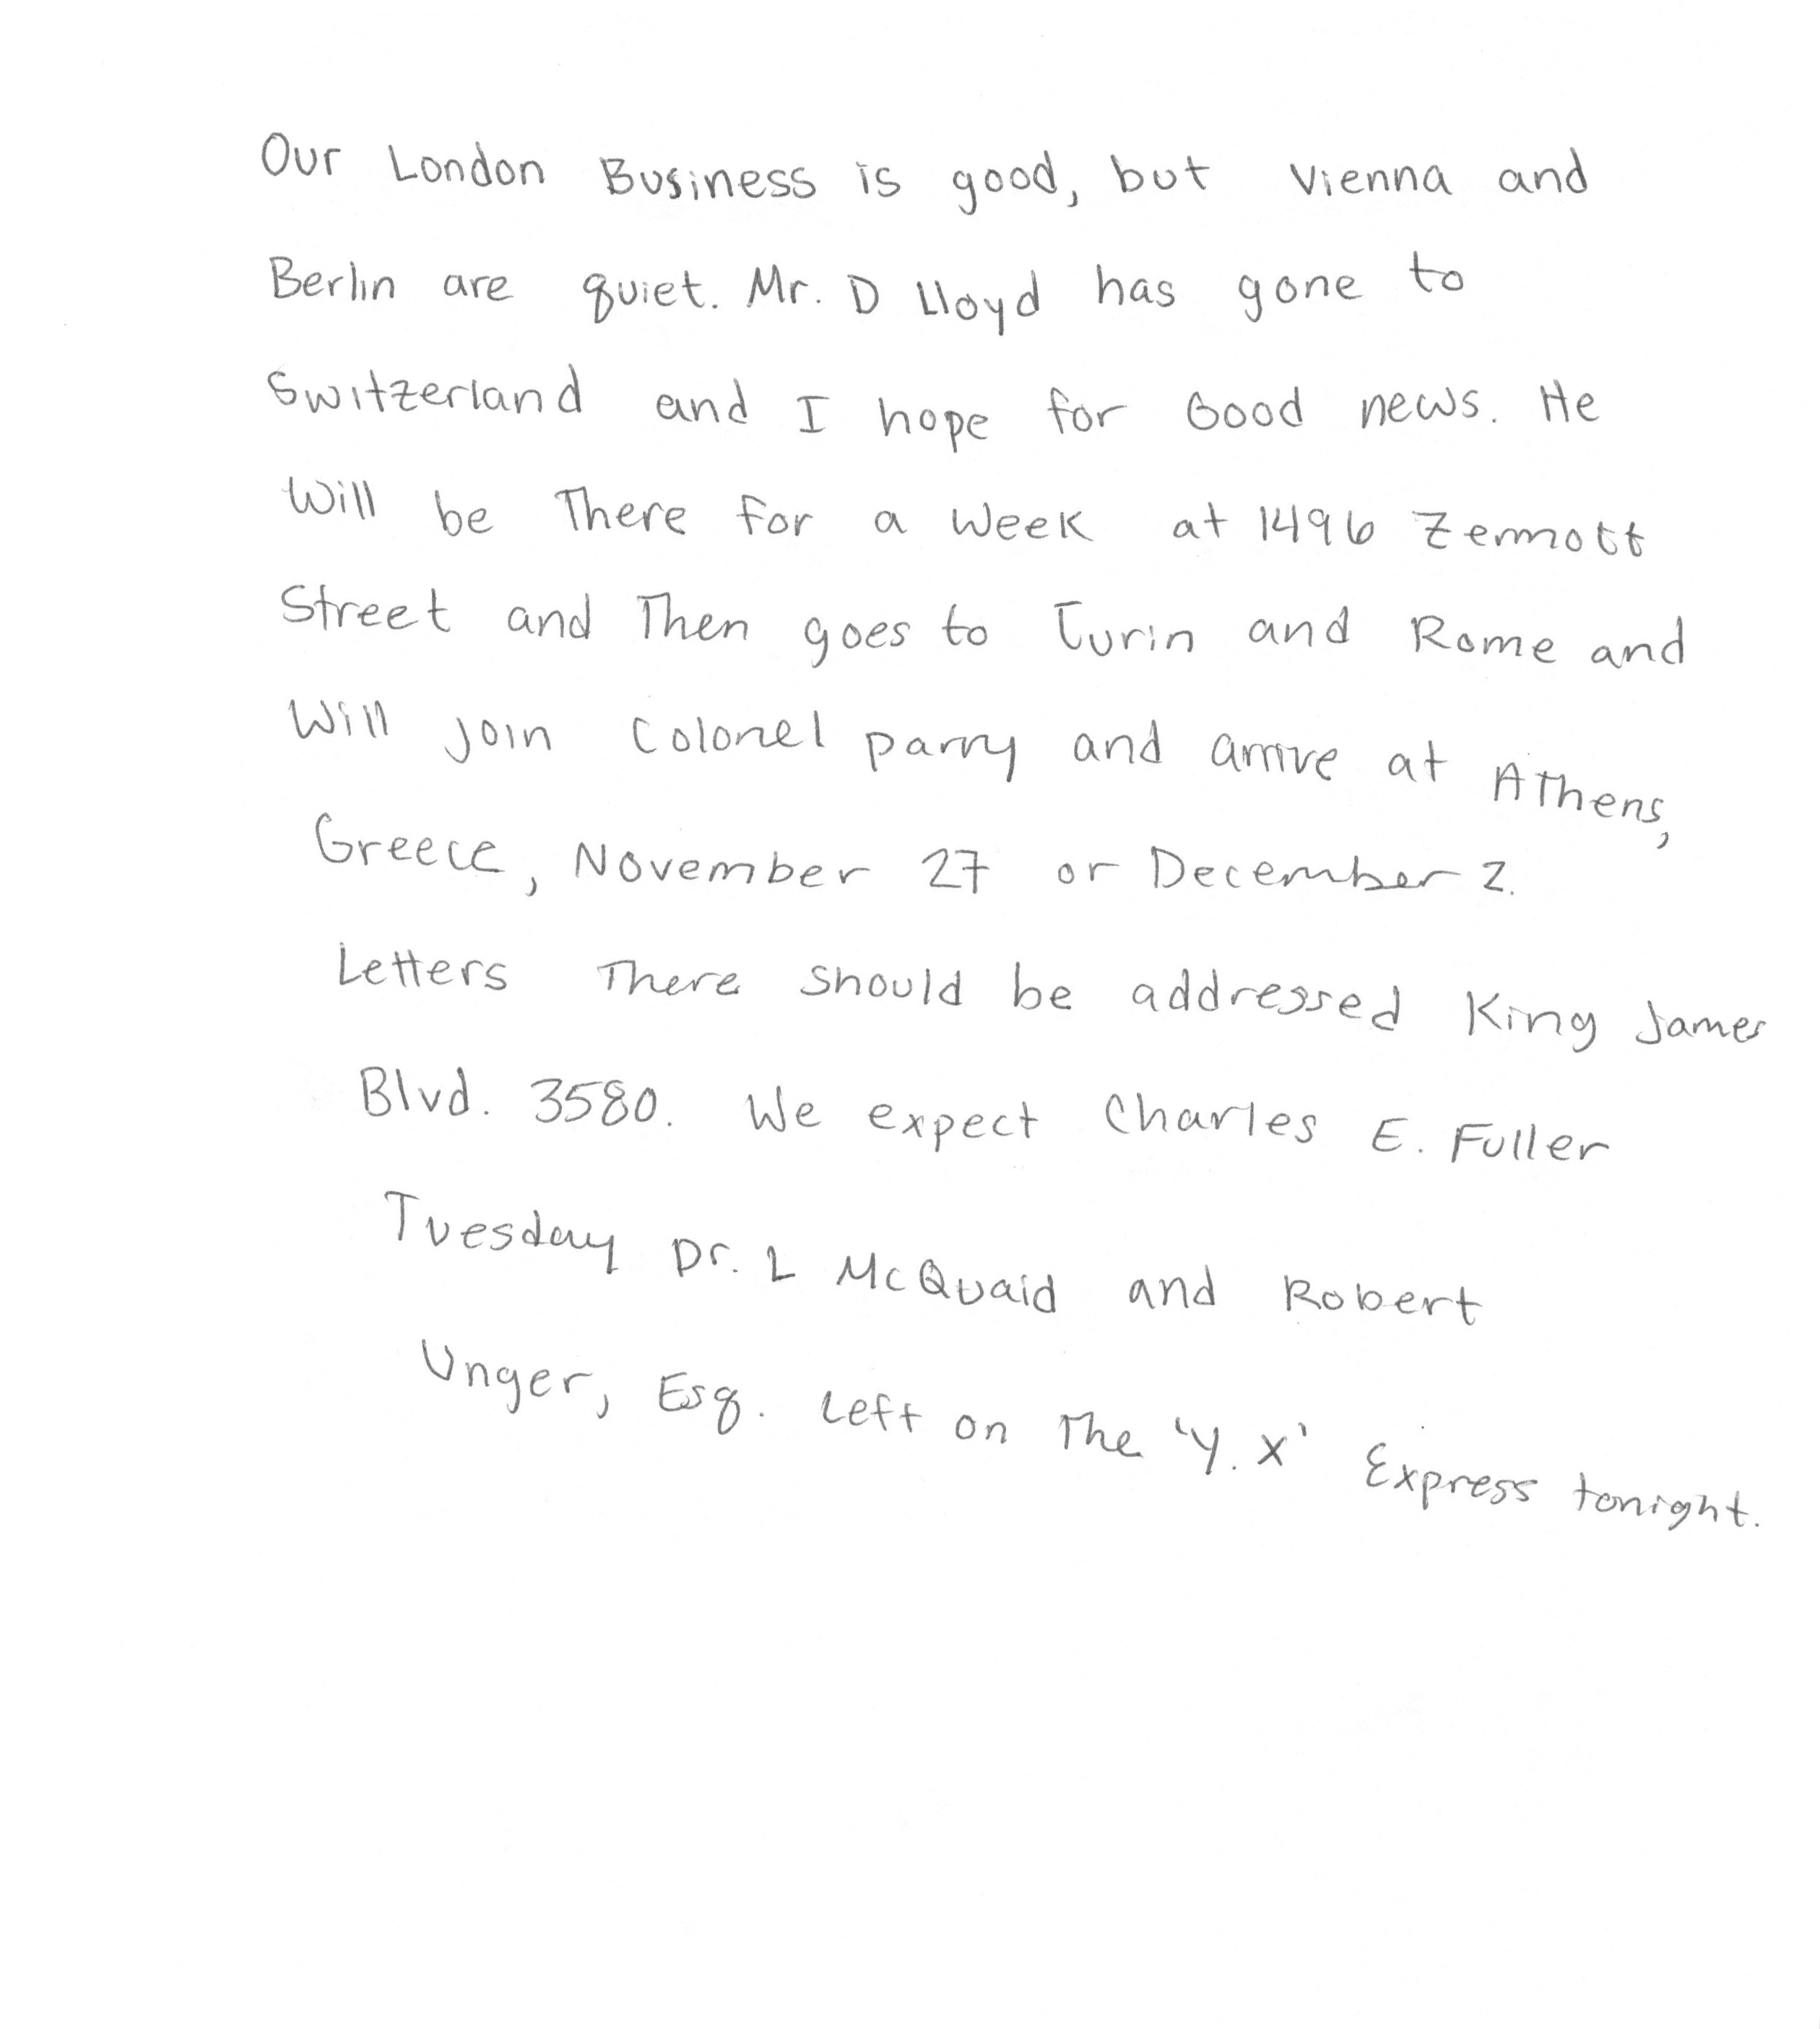 Our London Business is good, but Vienna and
Berlin are quiet. Mr. D Lloyd has gone to
Switzerland and I hope for Good news. He
Will be There for a week at 1496 Zermott
Street and Then goes to Turin and Rome and
Will join Colonel Parry and arrive at Athens,
Greece, November 27 or December 2.
Letters There should be addressed King James
Blvd. 3580. We expect Charles E. Fuller
Tuesday Dr. L McQuaid and Robert
Unger, Esq. Left on The 'Y.X' Express tonight.